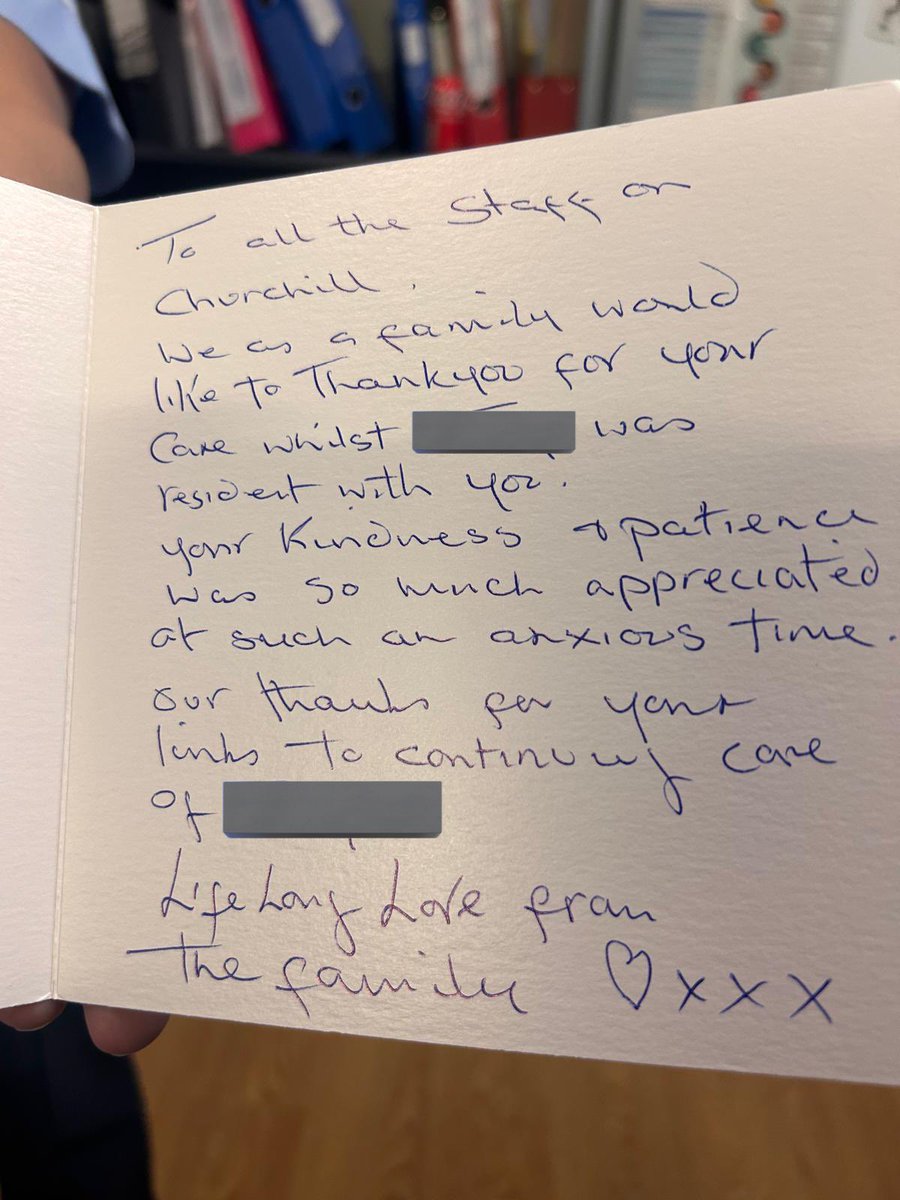 To all the Staff on
Churchill.
We as a family would
like to Thankyou for your
Care whilst was
resident with you.
your Kindness + patience
was so much appreciated
at such an anxious time.
our thanks for your
links to continuing care
of
LifeLong Love from
The family ♡ x x x